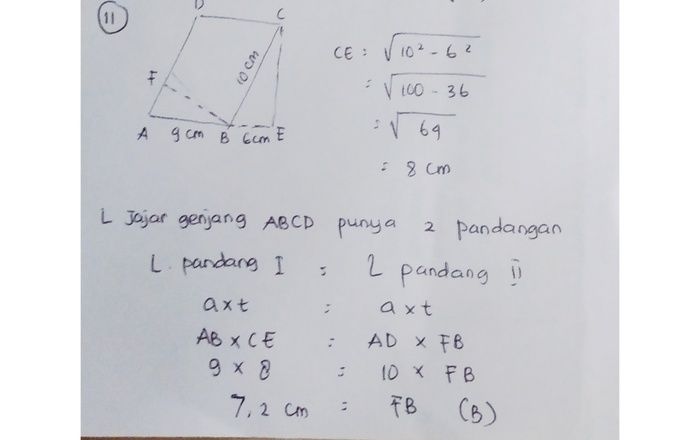 11
D C
10 cm
F
A 9 cm B 6 cm E
CE : √10² - 6²
: √100 - 36
: √64
: 8 cm
L Jajar genjang ABCD punya 2 pandangan
L. pandang I = L pandang II
a x t : a x t
AB x CE : AD x FB
9 x 8 = 10 x FB
7,2 cm = FB (B)